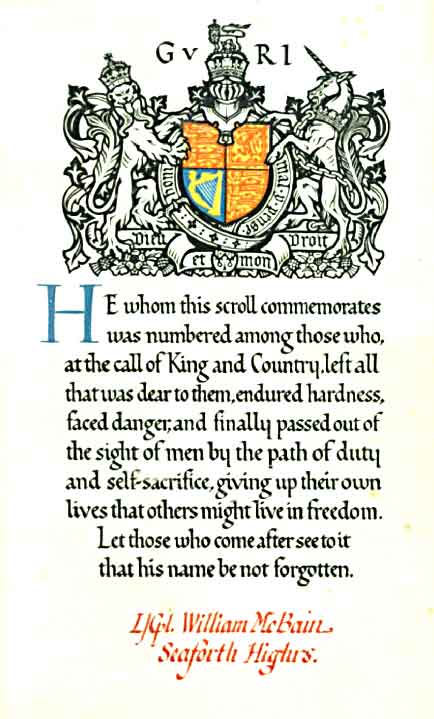 G V R I
Honi mal y pense
Dieu et mon Droit
HE whom this scroll commemorates
was numbered among those who,
at the call of King and Country, left all
that was dear to them, endured hardness,
faced danger, and finally passed out of
the sight of men by the path of duty
and self-sacrifice, giving up their own
lives that others might live in freedom.
Let those who come after see to it
that his name be not forgotten.
L/Cpl. William McBain
Seaforth Highrs.